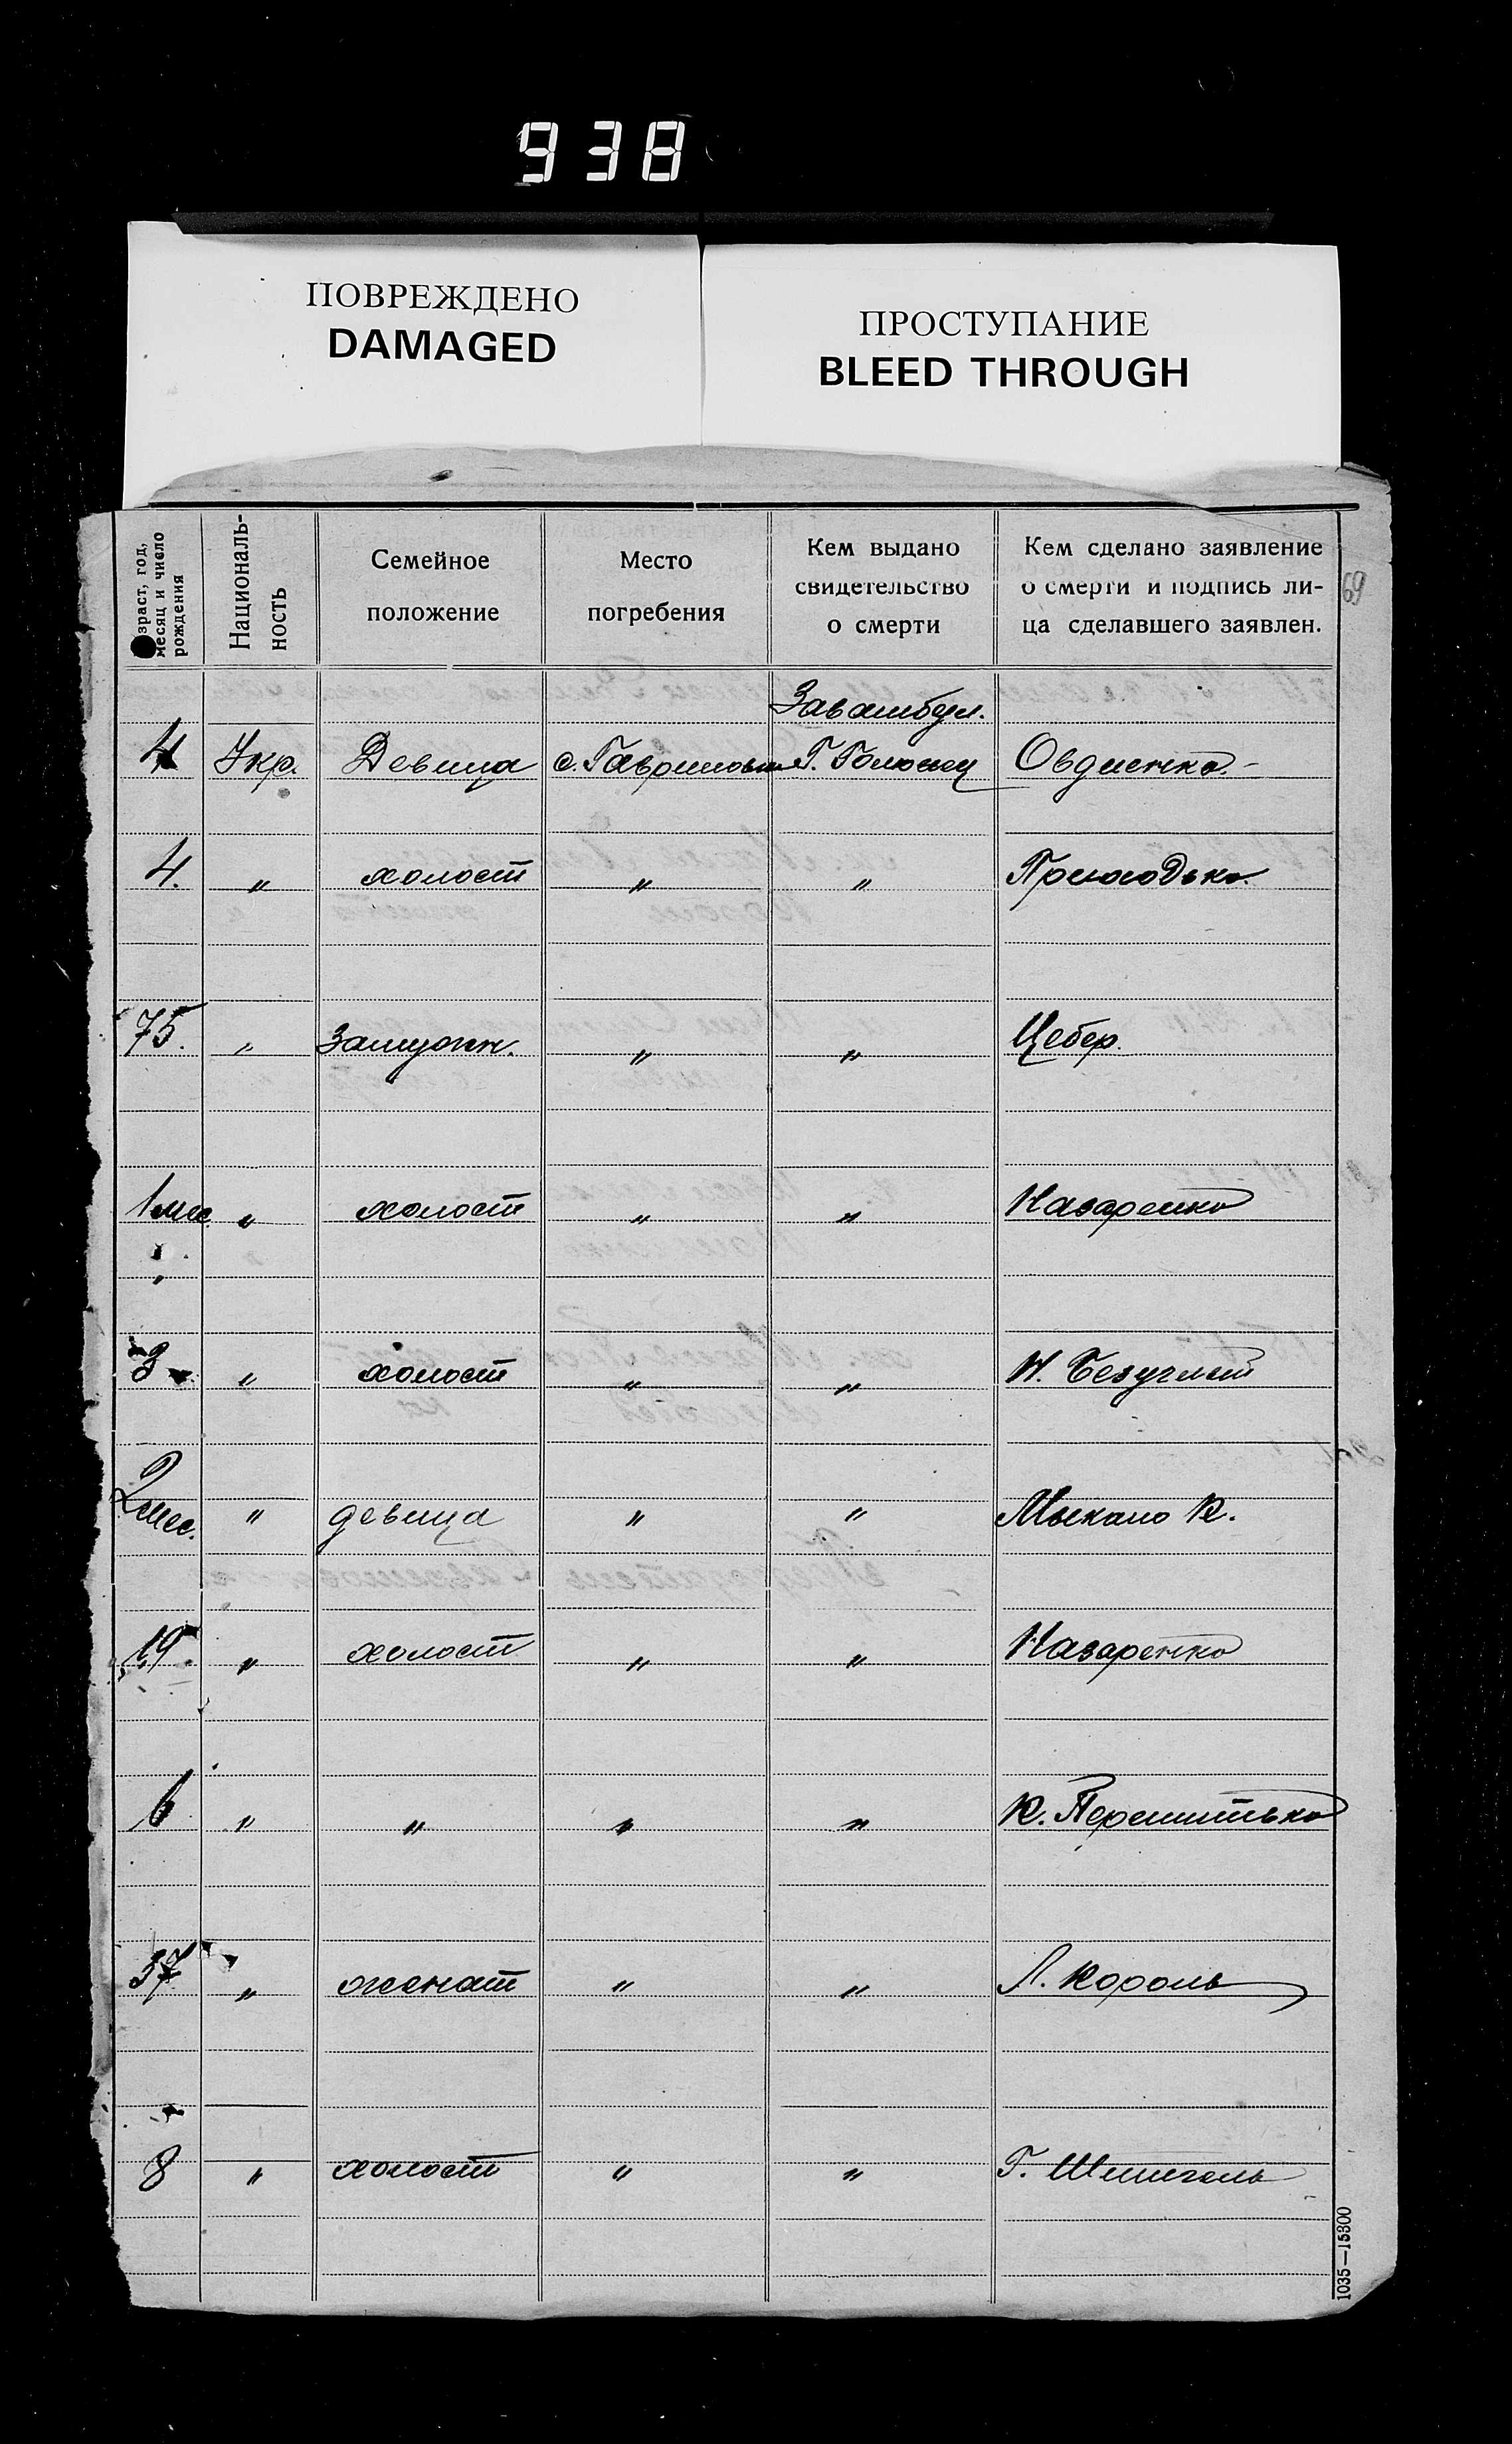 938
ПОВРЕЖДЕНО
DAMAGED
ПРОСТУПАНИЕ
BLEED THROUGH
69
зраст, год,
месяц и число
рождения
Националь-
ность
Семейное
положение
Место
погребения
Кем выдано
свидетельство
о смерти
Кем сделано заявление
о смерти и подпись ли-
ца сделавшего заявлен.
Завамбул.
4 Укр. Девица с. Г. Овдиенко.
4. " холост " " Приходько.
75. " Замужн. " " Цебер.
1 мес. " холост " " Назаренко
3 " холост " " Н. Безуглый
2 мес. " девица " " К.
19. " холост " " Назаренко
6 " " " " К.
37 " женат " " Л. Король
8 " холост " " Г.
1035—15300